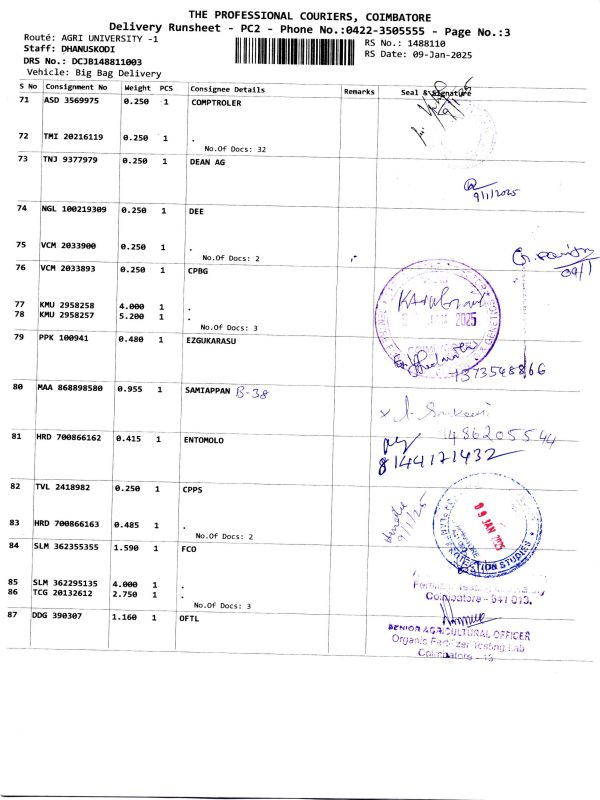 THE PROFESSIONAL COURIERS, COIMBATORE
Delivery Runsheet - PC2 - Phone No.:0422-3505555 - Page No.:3
Route: AGRI UNIVERSITY -1
RS No.: 1488110
Staff: DHANUSKODI
RS Date: 09-Jan-2025
DRS No.: DCJB148811003
Vehicle: Big Bag Delivery
S No Consignment No Weight PCS Consignee Details Remarks Seal & Signature
71 ASD 3569975 0.250 1 COMPTROLER
9/1/25
72 TMI 20216119 0.250 1 .
No.Of Docs: 32
73 TNJ 9377979 0.250 1 DEAN AG
9/1/2025
74 NGL 100219309 0.250 1 DEE
75 VCM 2033900 0.250 1 .
No.Of Docs: 2
09/1
76 VCM 2033893 0.250 1 CPBG
JAN 2025
77 KMU 2958258 4.000 1 .
78 KMU 2958257 5.200 1 .
No.Of Docs: 3
79 PPK 100941 0.480 1 EZGUKARASU
80 MAA 868898580 0.955 1 SAMIAPPAN B-38
81 HRD 700866162 0.415 1 ENTOMOLO
9486205544
8144171432
82 TVL 2418982 0.250 1 CPPS
9/1/25
09 JAN 2025
83 HRD 700866163 0.485 1 .
No.Of Docs: 2
84 SLM 362355355 1.590 1 FCO
85 SLM 362295135 4.000 1 .
86 TCG 20132612 2.750 1 .
Coimbatore - 641 013.
No.Of Docs: 3
87 DDG 390307 1.160 1 OFTL
SENIOR AGRICULTURAL OFFICER
Organic Fertilizer Testing Lab
Coimbatore - 13